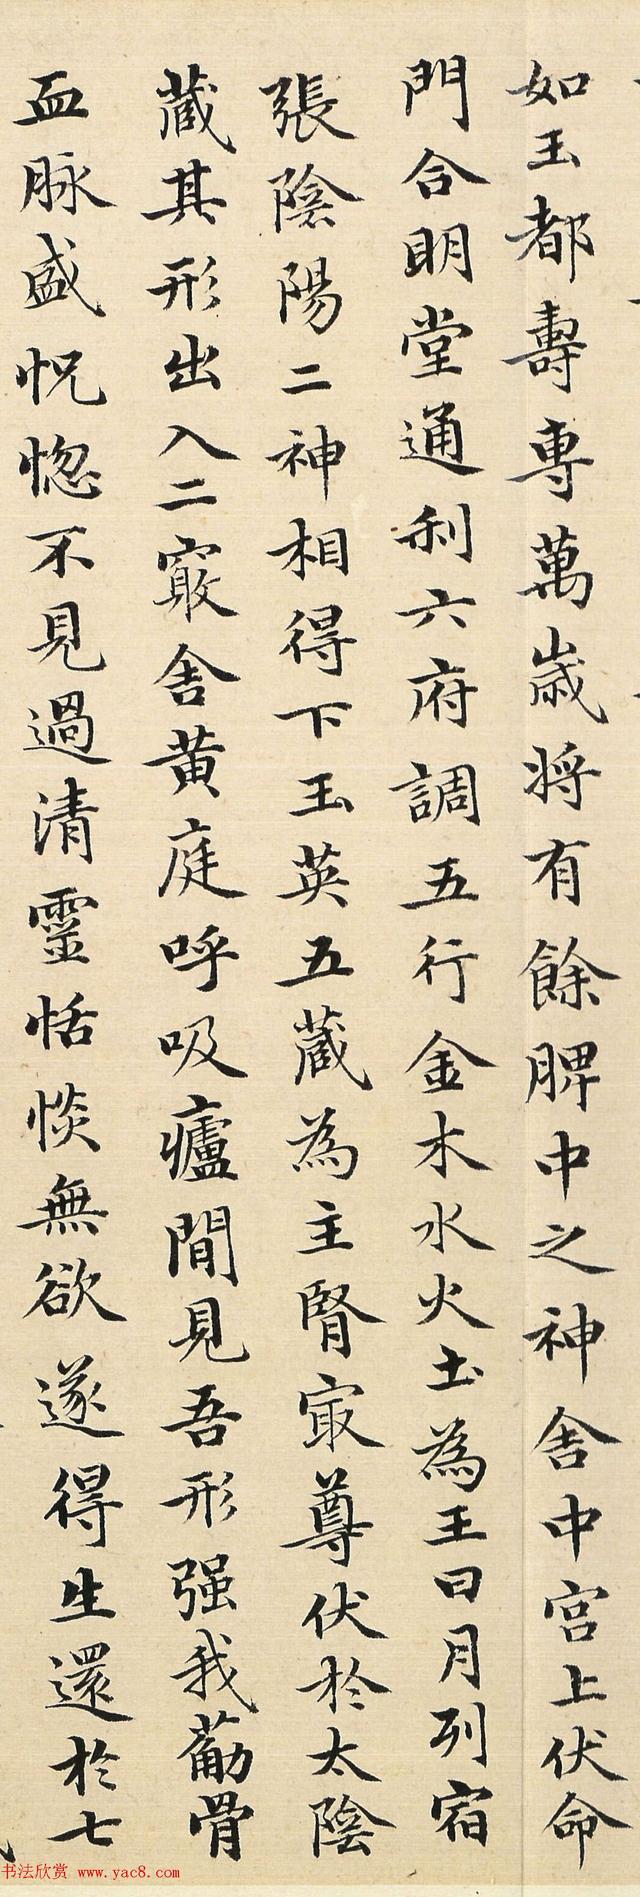 如玉都壽專萬歲將有餘脾中之神舍中宮上伏命
門合明堂通利六府調五行金木水火土為王日月列宿
張陰陽二神相得下玉英五藏為主腎㝡尊伏於太陰
藏其形出入二竅舍黃庭呼吸廬間見吾形强我筋骨
血脉盛怳惚不見過清靈恬惔無欲遂得生還於七
书法欣赏 www.yac8.com